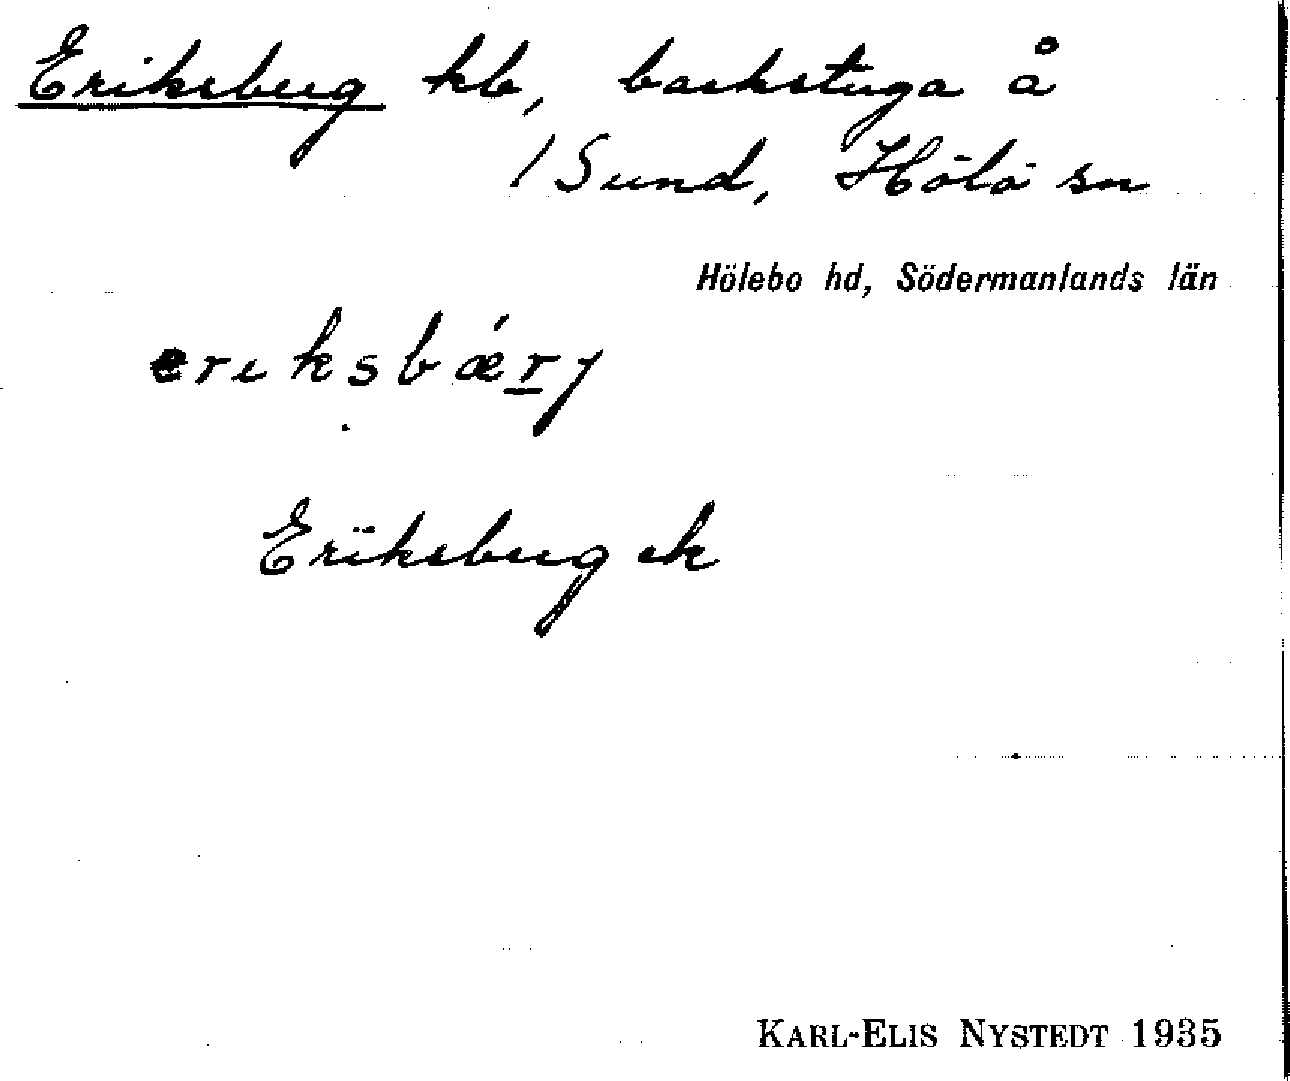 Eriksberg kb, backstuga å
/Sund, Hölö sn
Hölebo hd, Södermanlands län
eriksbǽrj
Eriksberg ek
KARL-ELIS NYSTEDT 1935